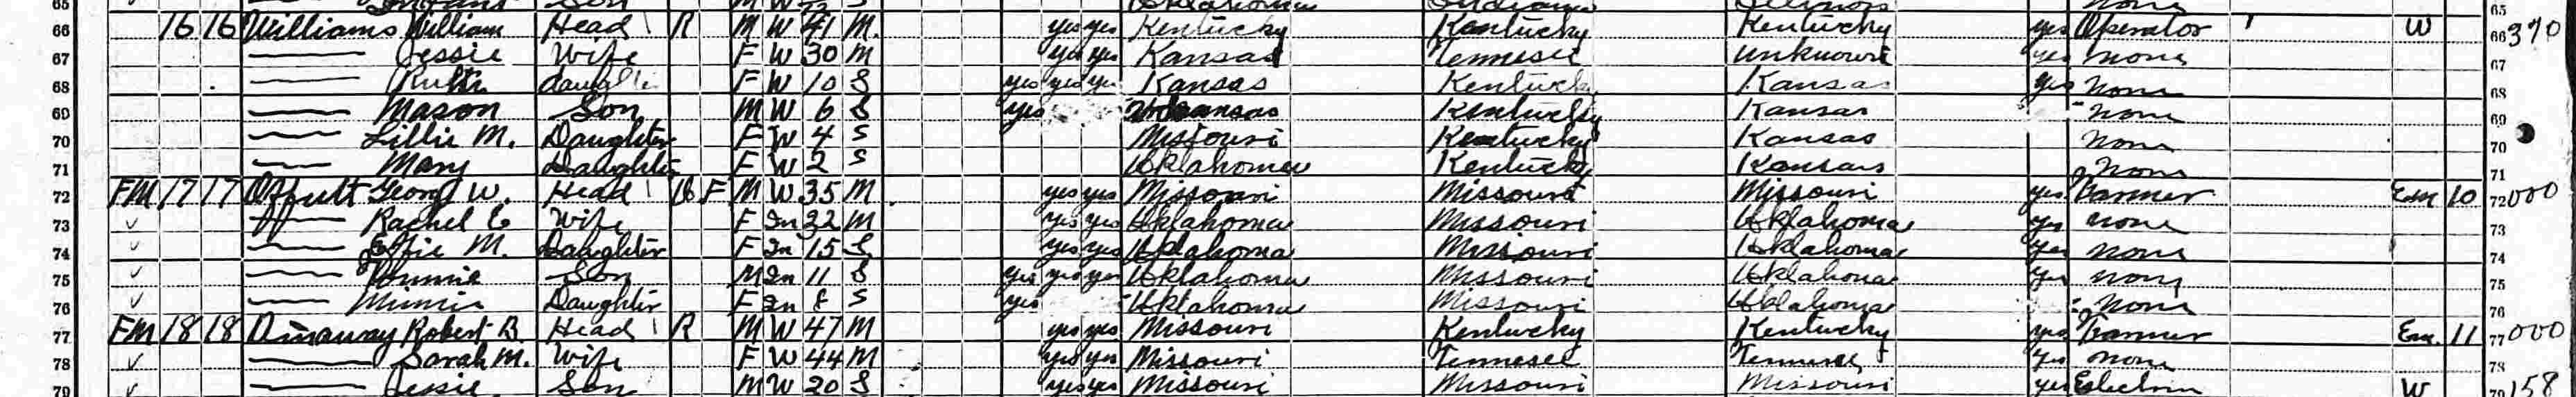 65 Son M W S Oklahoma Indiana Illinois none 65
66 16 16 Williams William Head R M W 41 M. yes yes Kentucky Kentucky Kentucky yes Operator W 66 370
67 — Jessie Wife F W 30 M yes yes Kansas Tennesee unknown yes none 67
68 — Ruth daughter F W 10 S yes yes yes Kansas Kentucky Kansas yes None 68
69 — Mason Son M W 6 S yes Kentucky Kansas none 69
70 — Lillie M. Daughter F W 4 S Missouri Kentucky Kansas none 70
71 — Mary Daughter F W 2 S Oklahoma Kentucky Kansas none 71
72 FM 17 17 Offutt George W. Head O F M W 35 M yes yes Missouri Missouri Missouri yes Farmer Em 10 72 000
73 ✓ — Rachel E Wife F In 32 M yes yes Oklahoma Missouri Oklahoma yes none 73
74 ✓ — Effie M. Daughter F In 15 S yes yes Oklahoma Missouri Oklahoma yes none 74
75 ✓ — Son M In 11 S yes yes yes Oklahoma Missouri Oklahoma yes none 75
76 ✓ — Minnie Daughter F In 8 S yes Oklahoma Missouri Oklahoma none 76
77 FM 18 18 Robert B. Head R M W 47 M yes yes Missouri Kentucky Kentucky yes Farmer Em. 11 77 000
78 ✓ — Sarah M. Wife F W 44 M yes yes Missouri Tennesee Tennesee yes none 78
79 ✓ — Jessie Son M W 20 S yes yes Missouri Missouri Missouri yes W 79 158